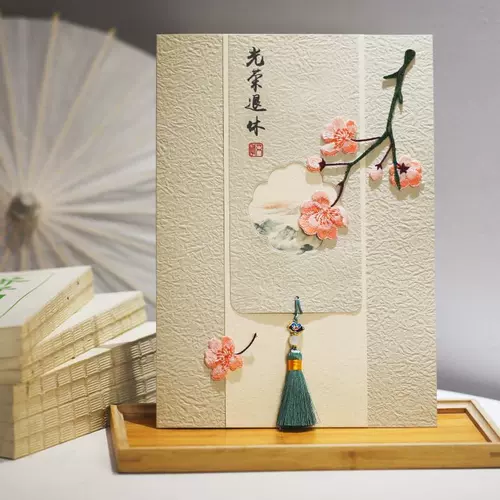 光荣退休